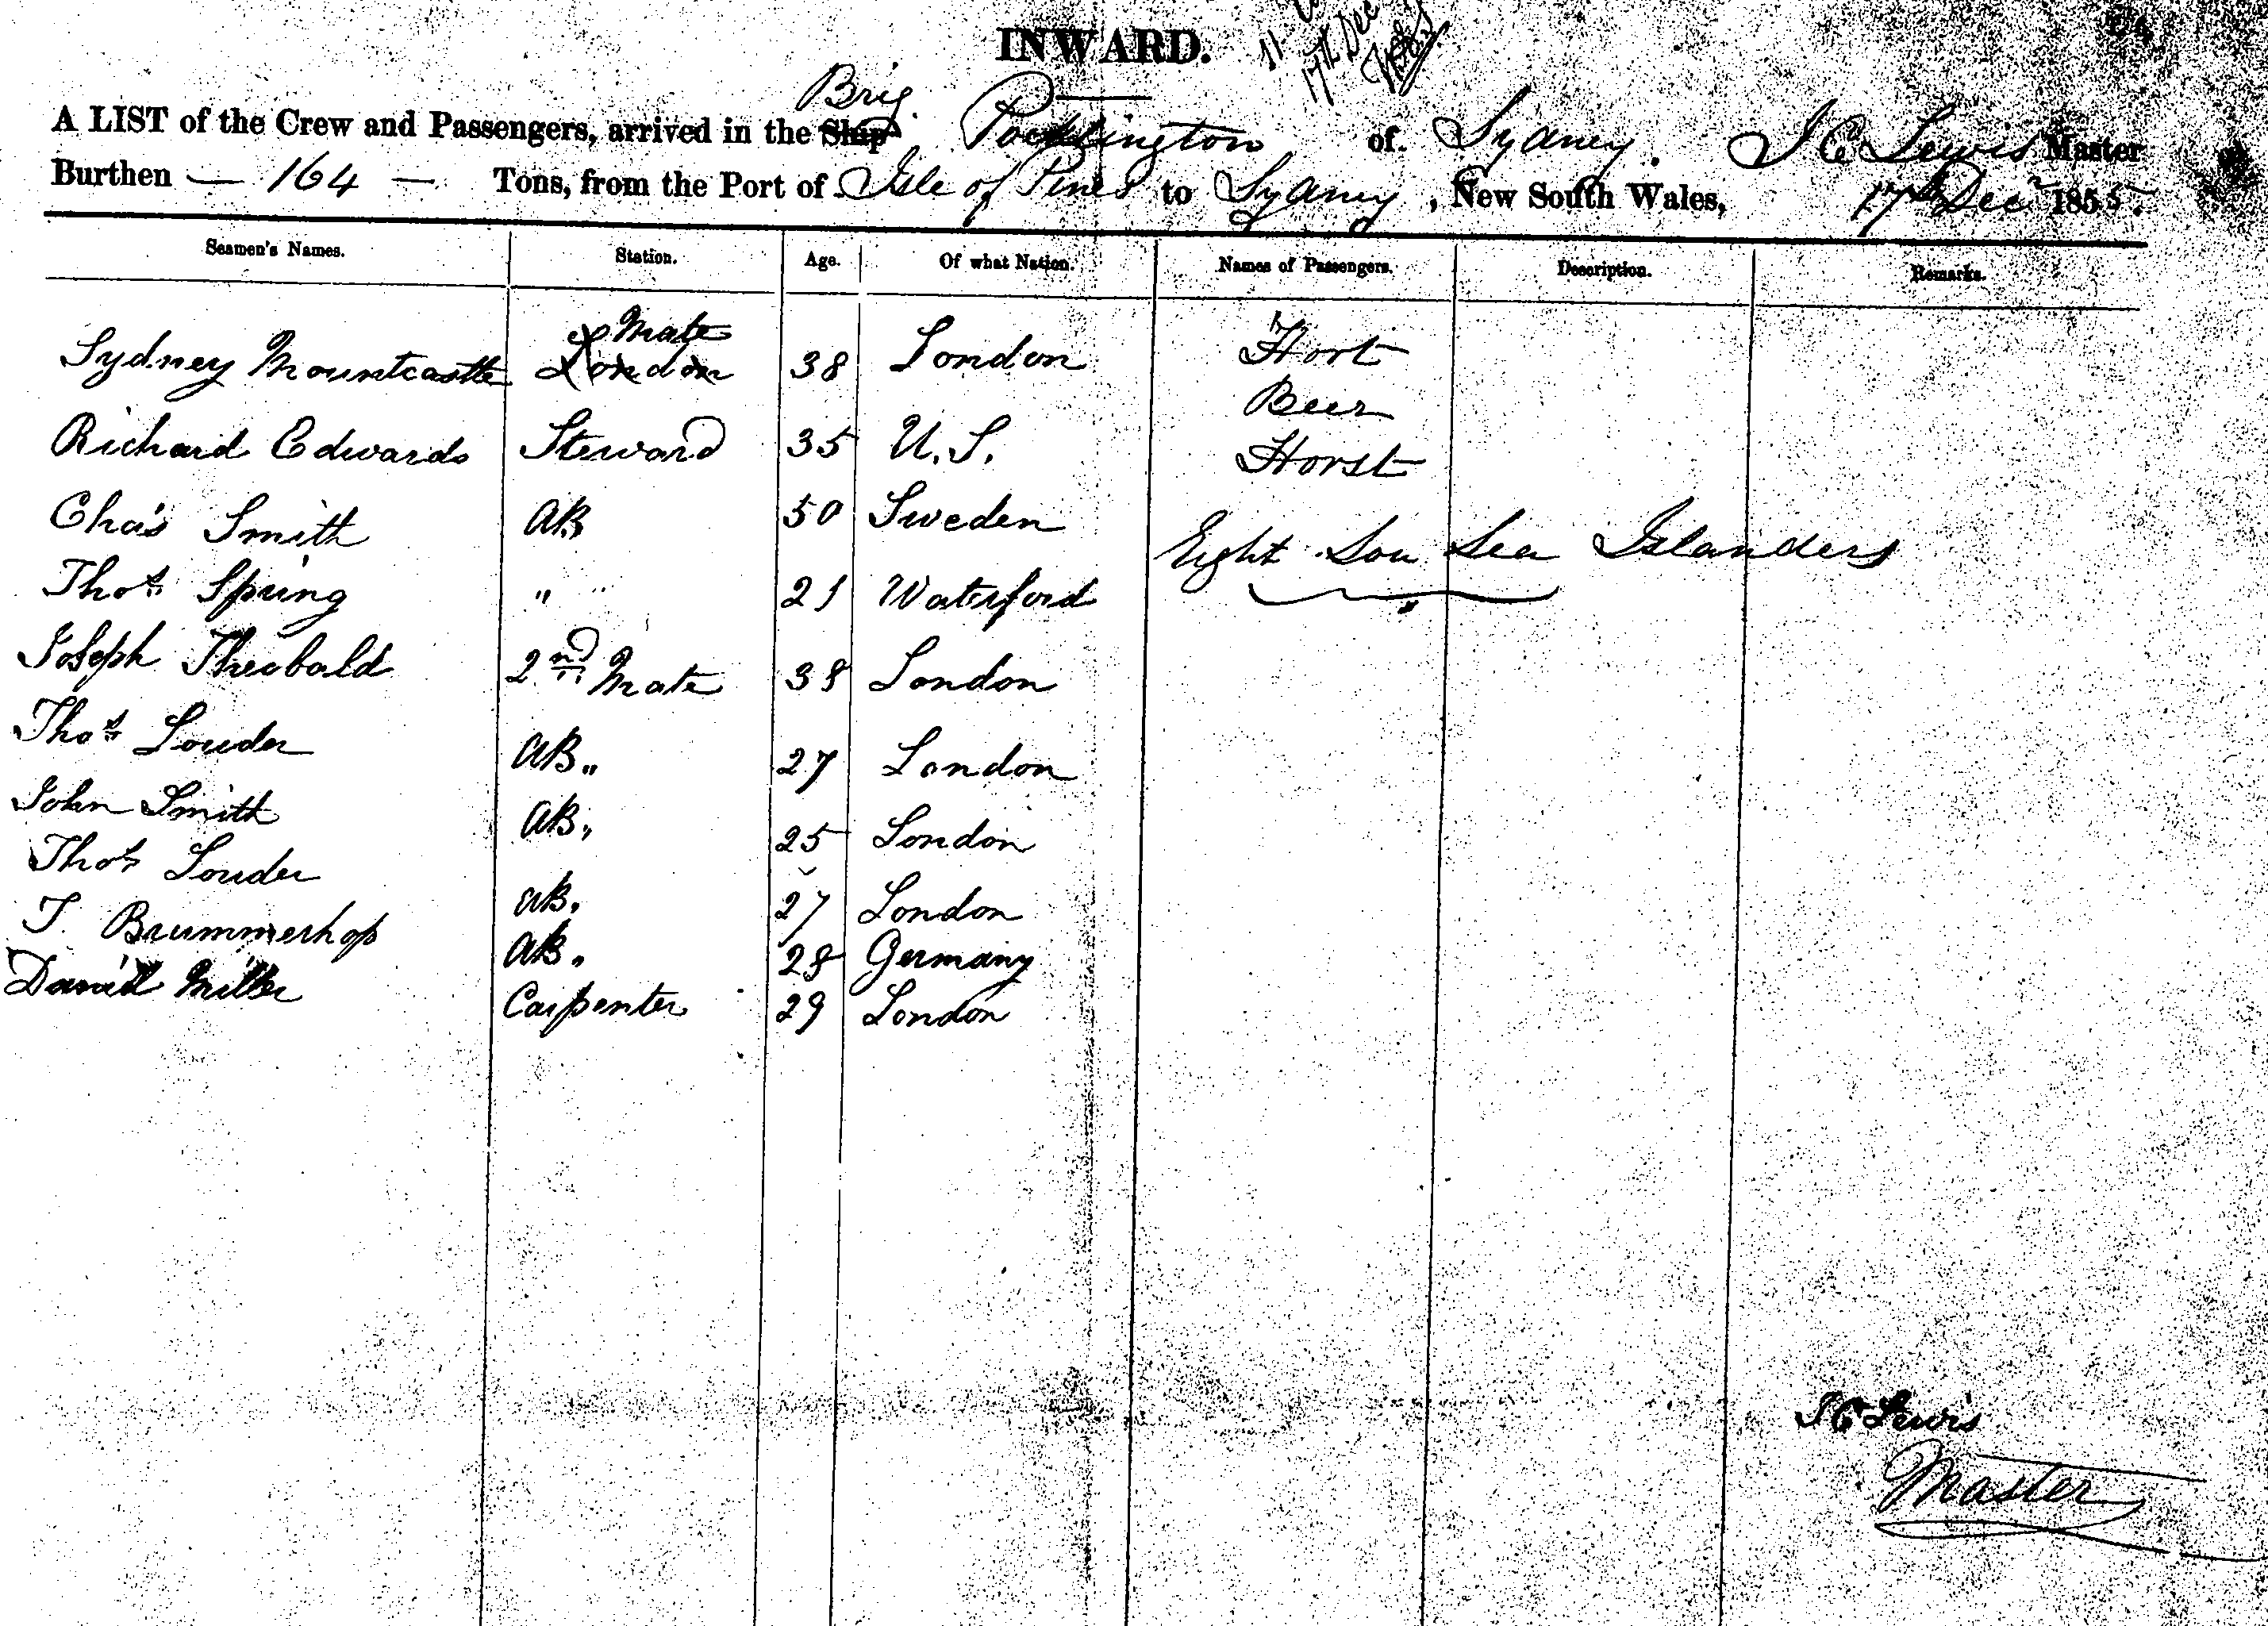 INWARD.
11
17th Dec
Brig
A LIST of the Crew and Passengers, arrived in the Ship Pocklington of Sydney. J C Lewis Master
Burthen — 164 — Tons, from the Port of Isle of Pines to Sydney, New South Wales, 17th Decr 1855.
Seamen's Names. Station. Age. Of what Nation. Names of Passengers. Description. Remarks.
Mate
Sydney Mountcastle London 38 London Hort
Beer
Richard Edwards Steward 35 U.S. Horst
Cha's Smith AB 50 Sweden
Eight Sou Sea Islanders
Thos Spring " 21 Waterford
Joseph Theobald 2nd Mate 38 London
Thos Louder AB " 27 London
John Smith AB " 25 London
Thos Louder AB. 27 London
J. Brummerhop AB " 28 Germany
David Miller Carpenter 29 London
J C Lewis
Master